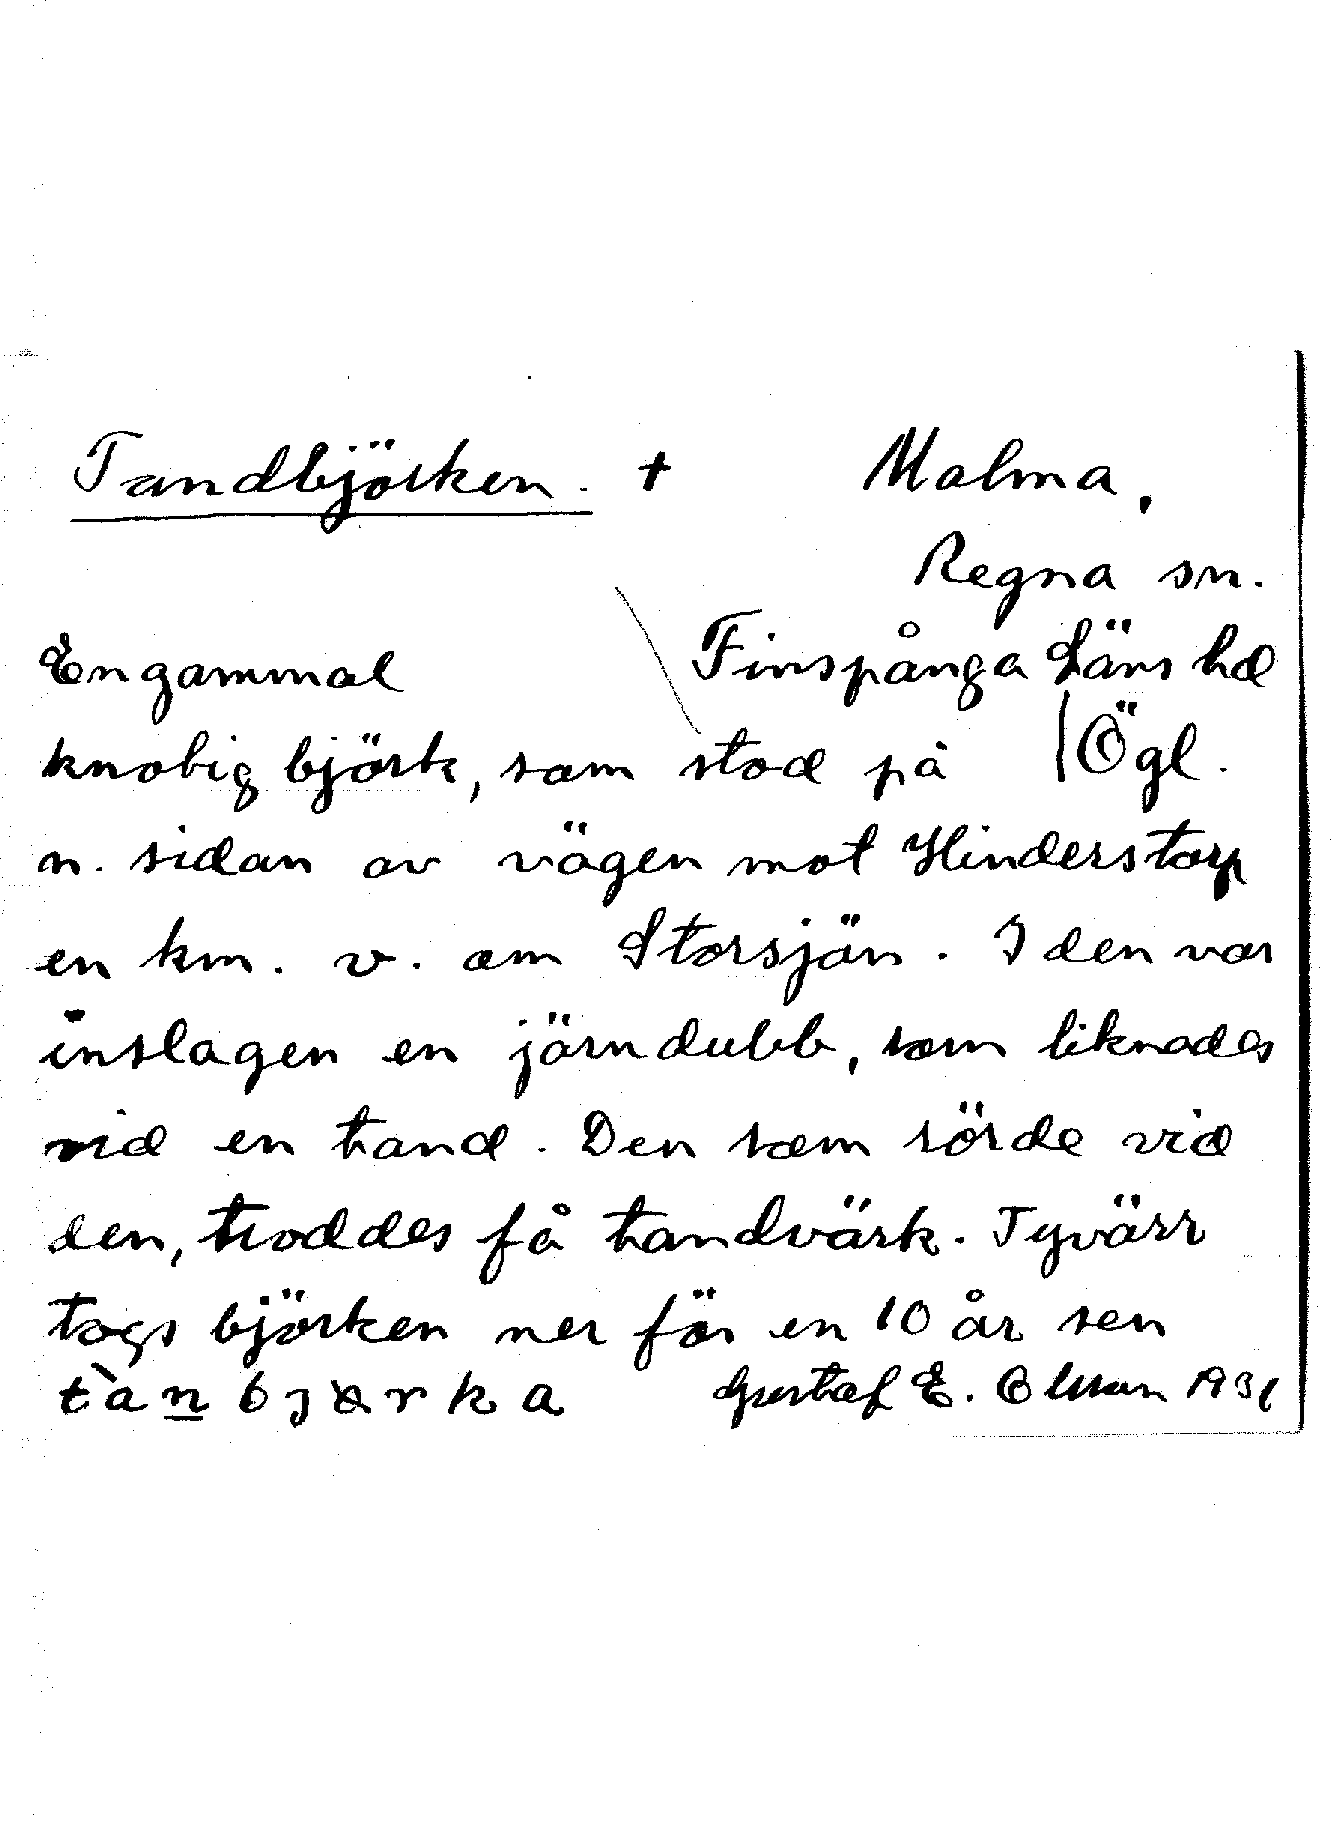 Tandbjörken. +
Malma,
Regna sn.
Finspånga Läns hd
Ögl.
En gammal
knobig björk, som stod på
n. sidan av vägen mot Hinderstorp
en km. v. om Storsjön. I den var
inslagen en järndubb, som liknades
vid en tand. Den som rörde vid
den, troddes få tandvärk. Tyvärr
togs björken ner för en 10 år sen
Gustaf E. Olsson 1931